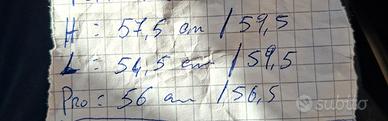 H = 57,5 cm / 59,5
L = 54,5 cm / 59,5
Pro = 56 cm / 56,5
subito